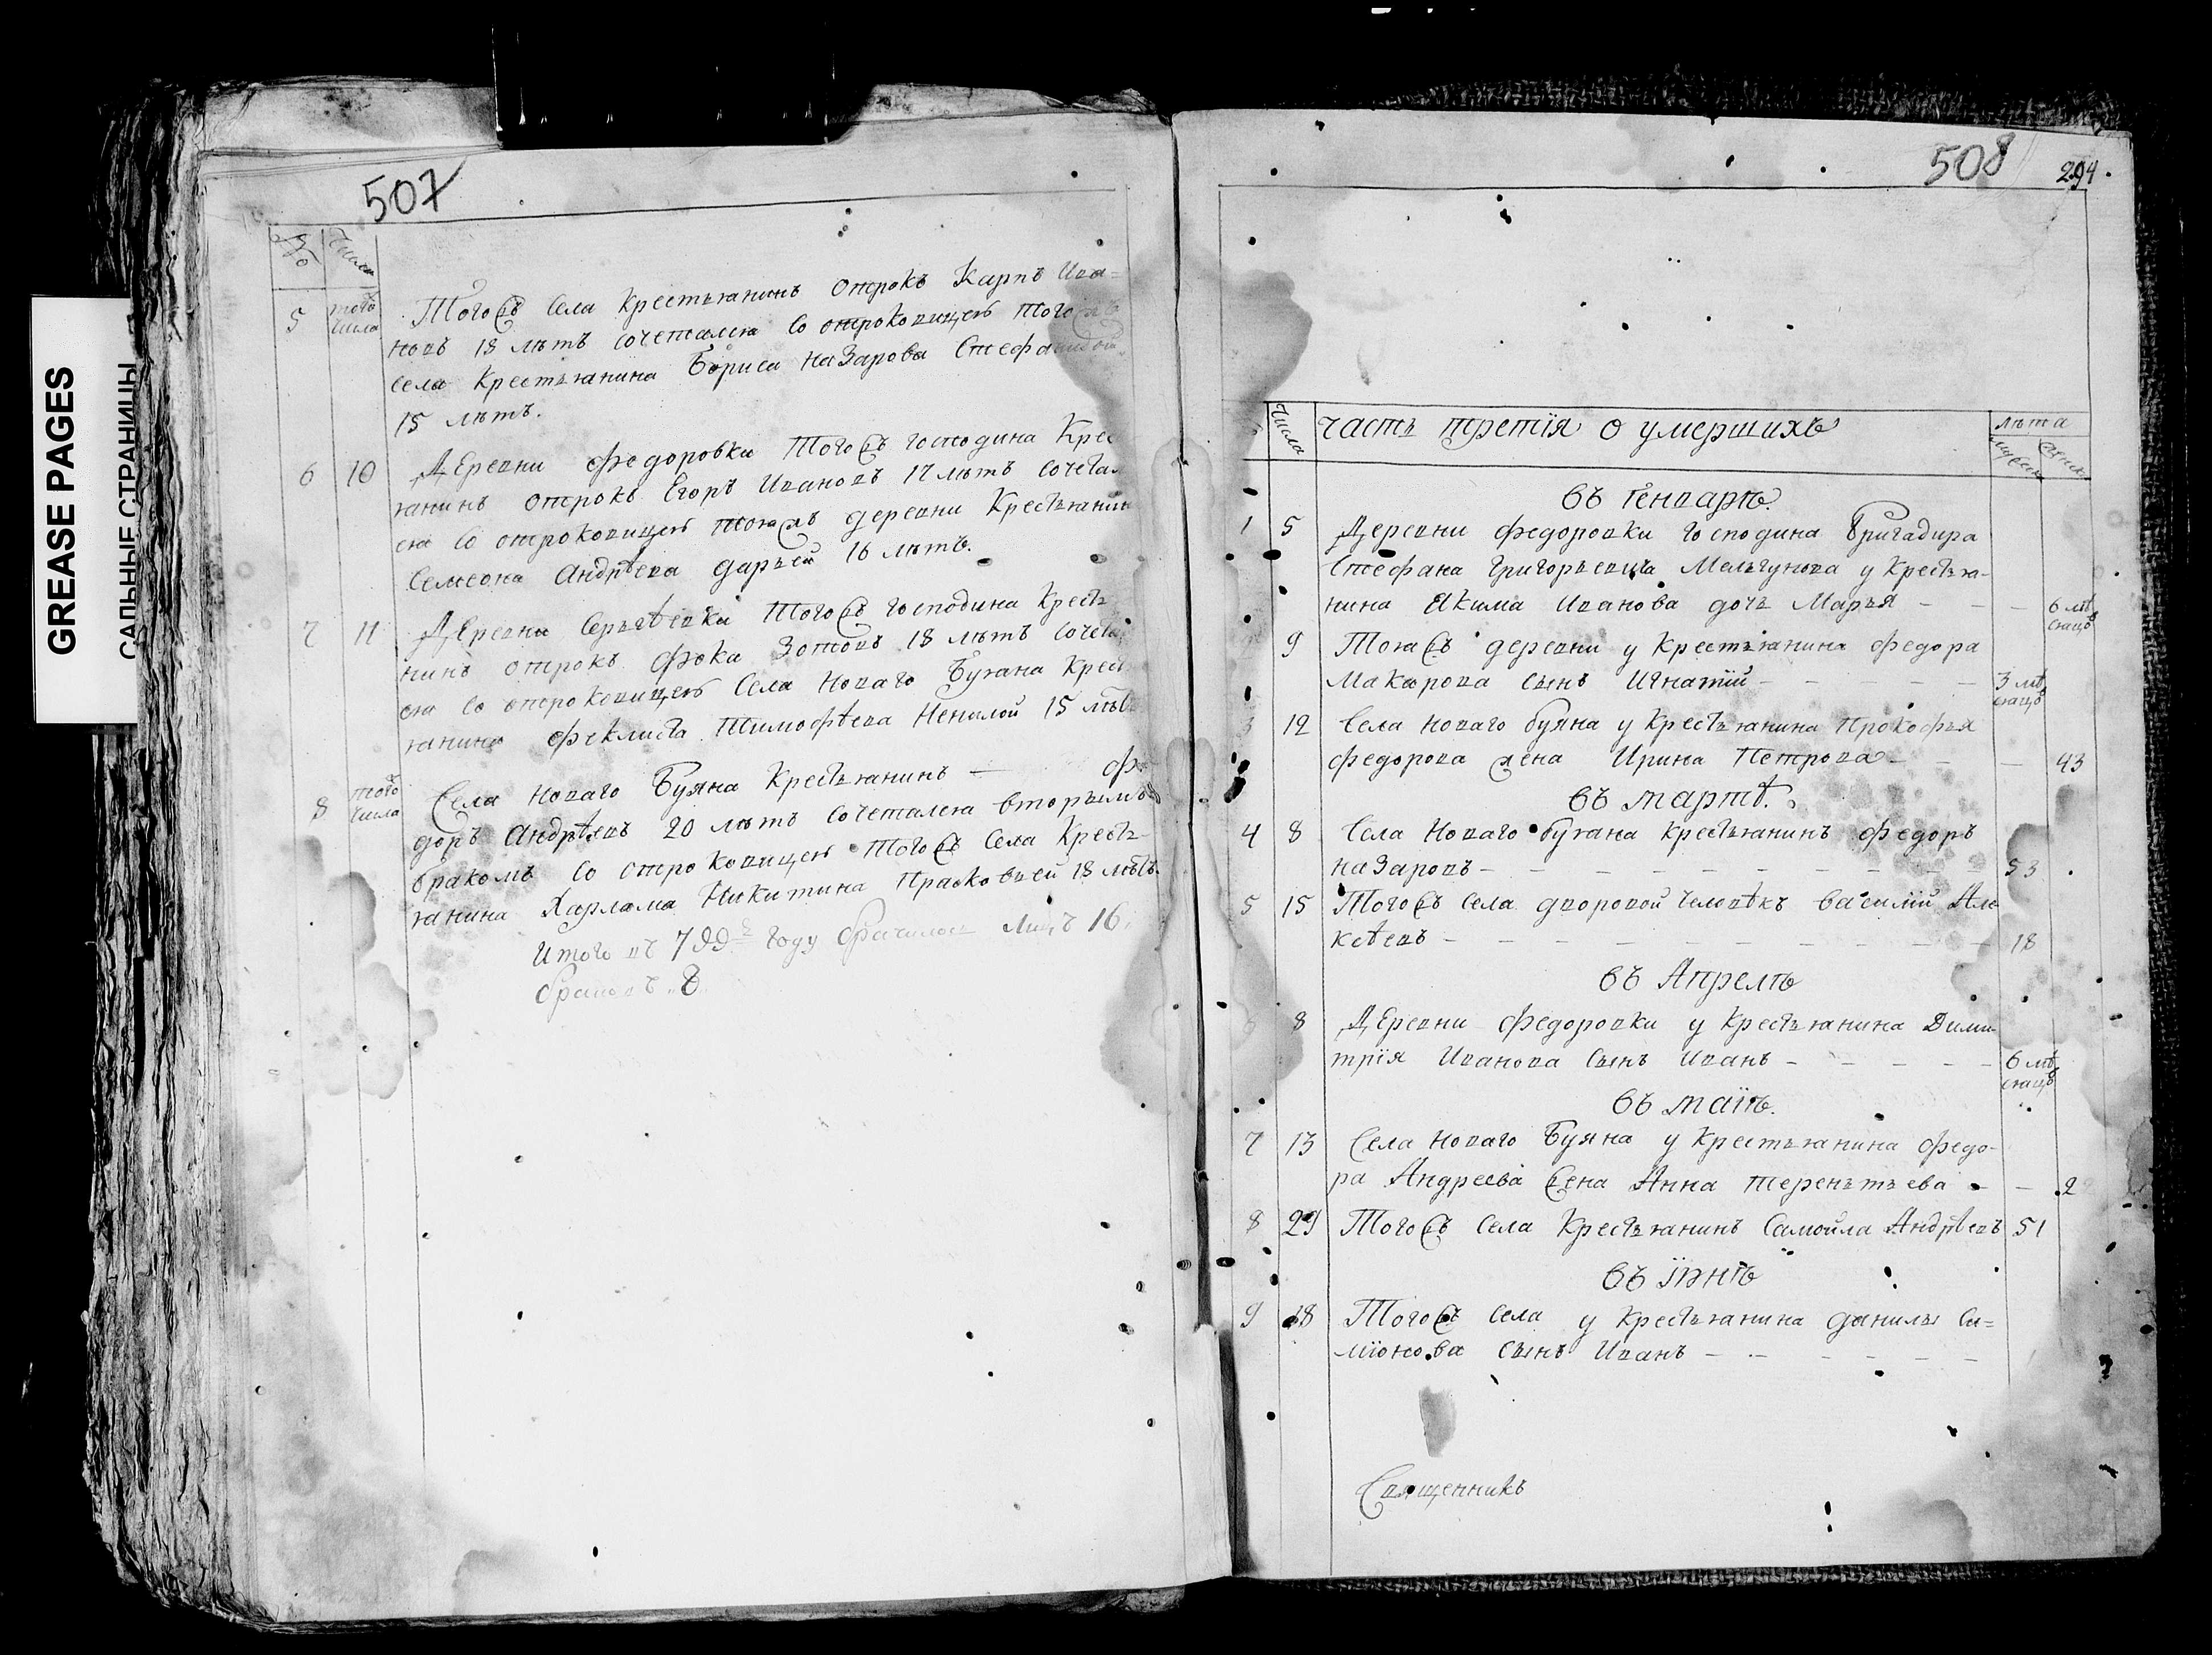 GREASE PAGES
САЛЬНЫЕ СТРАНИЦЫ
507
Число
5 того числа Тогожъ села крестьянинъ отрокъ Карпъ Ива=
новъ 18 лѣтъ сочетался со отроковицею тогожъ
села крестьянина Бориса Назарова Стефанидой
15 лѣтъ.
6 10 Деревни Федоровки тогожъ господина крес
янинъ отрокъ Егоръ Ивановъ 17 лѣтъ сочетал
ся со отроковицею тояжъ деревни крестьянин
Семеона Андрѣева Дарьей 16 лѣтъ.
7 11 Деревни Сергѣевки тогожъ господина кресть
нинъ отрокъ Фока Зотовъ 18 лѣтъ сочета
ся со отроковицею села Новаго Буяна крест
янина Феклиста Тимофѣева Ненилой 15 лѣтъ
8 того числа Села Новаго Буяна крестьянинъ — Фе
доръ Андрѣевъ 20 лѣтъ сочетался вторымъ
бракомъ со отроковицею тогожъ села кресть
янина Харлама Никитина Прасковьей 18 лѣтъ.
Итого въ 799 году брачилось лицъ 16.
браковъ 8
508
294
Числа
часть третїя о умершихъ
лѣта
въ генварѣ.
1 5 Деревни Федоровки господина бригадира
Стефана Григорьевича Мельгунова у крестья-
нина Якима Иванова дочь Марья — — — 6 мѣсяцъ
9 Тояжъ деревни у крестьянина Федора
Макарова сынъ Игнатїй — — — — — 3 мѣсяцъ
3 12 Села Новаго Буяна у крестьянина Прокофья
Федорова жена Ирина Петрова — — — 43
въ мартѣ.
4 8 Села Новаго Буяна крестьянинъ Федоръ
Назаровъ — — — — — — — — — 53
5 15 Тогожъ села дворовой человѣкъ Василїй Але
ксѣевъ — — — — — — — — — 18
въ Апрелѣ
8 Деревни Федоровки у крестьянина Дими-
трїя Иванова сынъ Иванъ — — — — — 6 мѣсяцъ
въ маїѣ.
7 13 Села Новаго Буяна у крестьянина Федо-
ра Андреева жена Анна Терентьева — — 2
8 29 Тогожъ села крестьянинъ Самойла Андрѣевъ 51
въ їюнѣ
9 18 Тогожъ села у крестьянина Данилы Си=
мїонова сынъ Иванъ — — — — — —
Священникъ